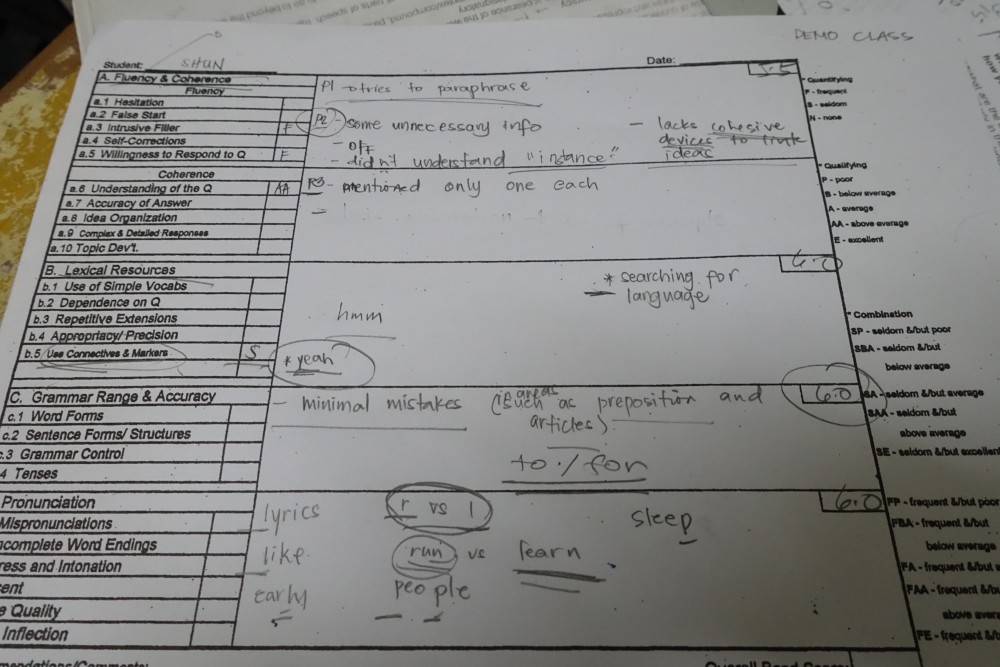 DEMO CLASS
Student: SHUN
Date:
5.5
A. Fluency & Coherence
Fluency
a.1 Hesitation
a.2 False Start
a.3 Intrusive Filler F
a.4 Self-Corrections
a.5 Willingness to Respond to Q F
Coherence
a.6 Understanding of the Q AA
a.7 Accuracy of Answer
a.8 Idea Organization
a.9 Complex & Detailed Responses
a.10 Topic Dev't.
P1 - tries to paraphrase
P2 - some unnecessary info
- off
- didn't understand "instance"
- lacks cohesive
devices to link
ideas
P3 - mentioned only one each
* Quantifying
F - frequent
S - seldom
N - none
* Qualifying
P - poor
B - below average
A - average
AA - above average
E - excellent
B. Lexical Resources
b.1 Use of Simple Vocabs
b.2 Dependence on Q
b.3 Repetitive Extensions
b.4 Appropriacy/ Precision
b.5 Use Connectives & Markers S
6.0
* searching for
language
hmm
* yeah
* Combination
SP - seldom &/but poor
SBA - seldom &/but
below average
SA - seldom &/but average
SAA - seldom &/but
above average
SE - seldom &/but excellent
C. Grammar Range & Accuracy
c.1 Word Forms
c.2 Sentence Forms/ Structures
c.3 Grammar Control
4 Tenses
6.0
- minimal mistakes (such as preposition and
in areas
articles)
to / for
Pronunciation
Mispronunciations
ncomplete Word Endings
ress and Intonation
ent
e Quality
Inflection
6.0
lyrics r vs l sleep
like run vs learn
early people
FP - frequent &/but poor
FBA - frequent &/but
below average
FA - frequent &/but a
FAA - frequent &/bu
above aver
FE - frequent &/b
mendations/Comments: